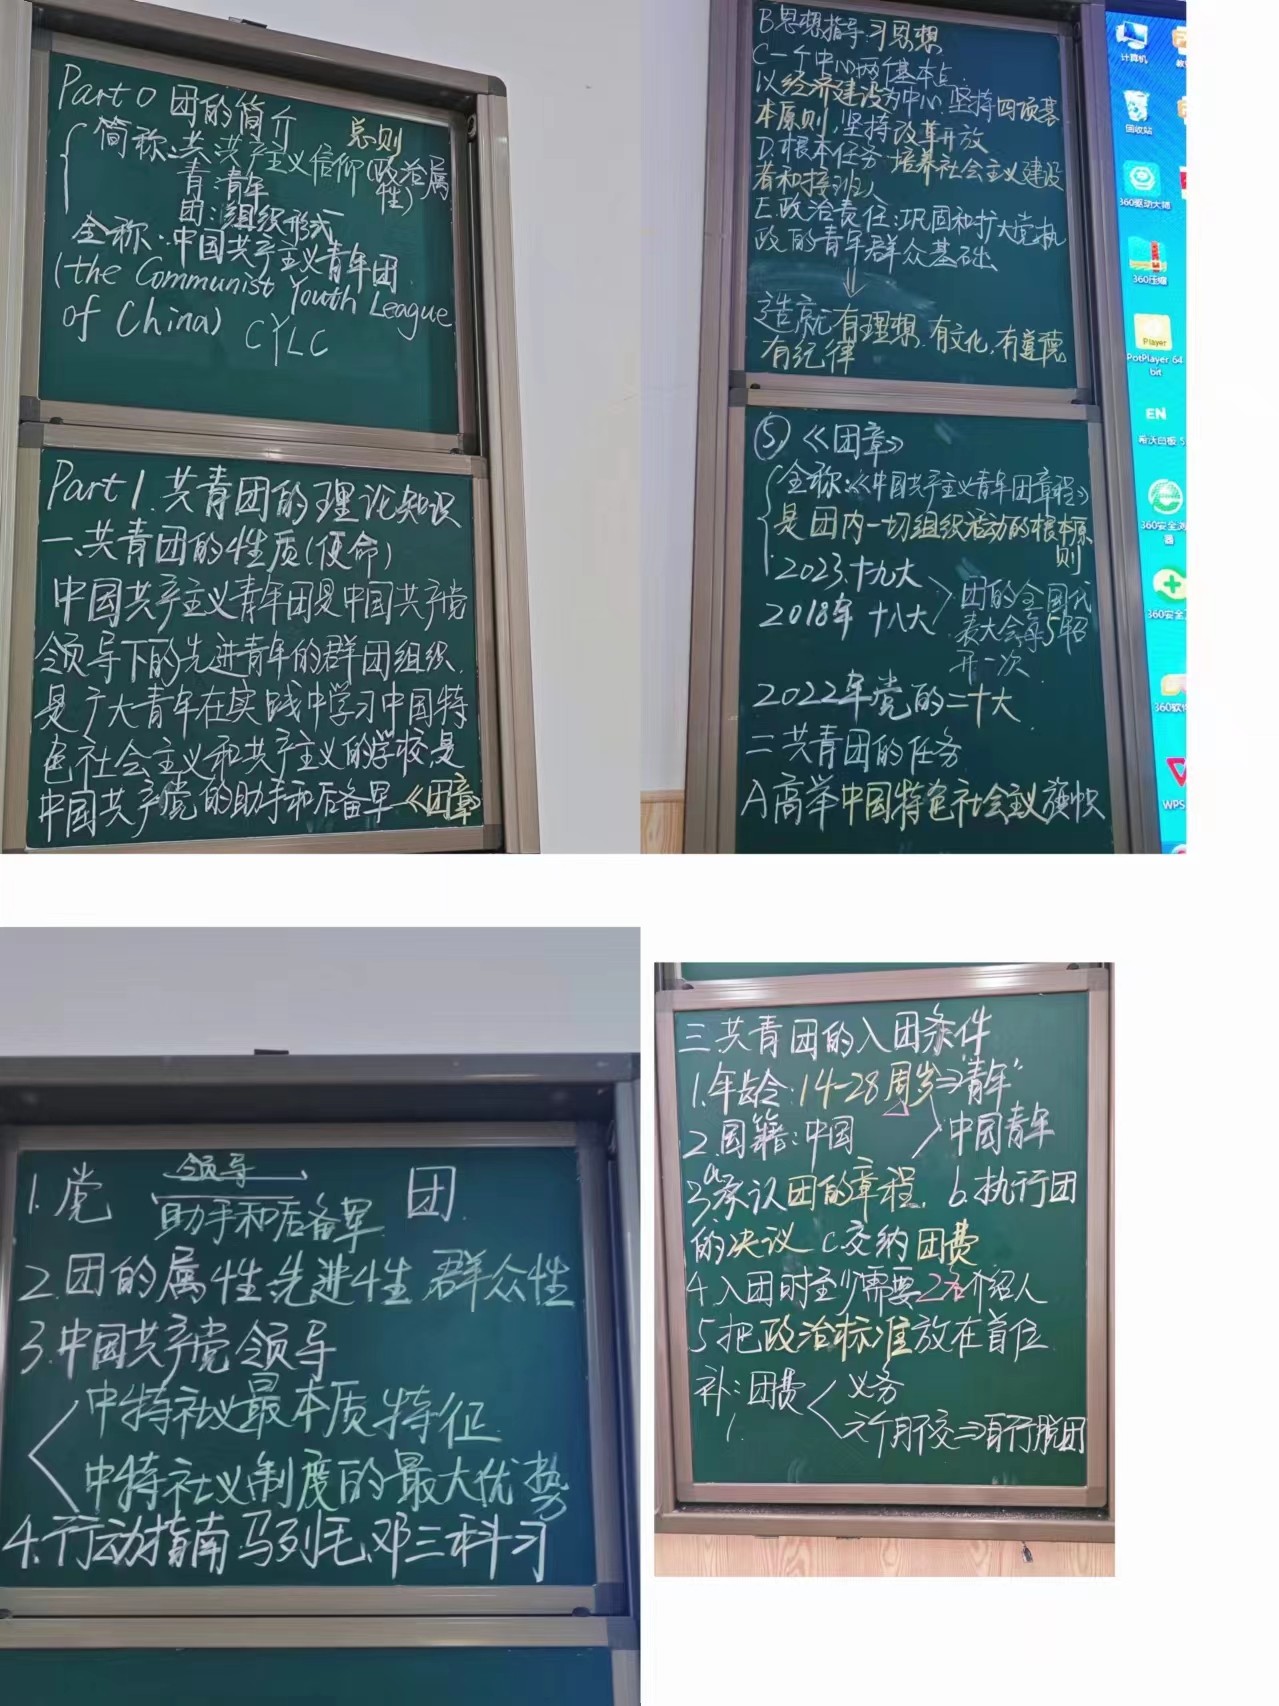 Part 0 团的简介
总则
简称:共:共产主义信仰(政治属性)
青:青年
团:组织形式
全称:中国共产主义青年团
(the Communist Youth League
of China) CYLC
Part 1.共青团的理论知识
一、共青团的性质(使命)
中国共产主义青年团是中国共产党
领导下的先进青年的群团组织.
是广大青年在实践中学习中国特
色社会主义和共产主义的学校,是
中国共产党的助手和后备军《团章》
B思想指导:习思想
C一个中心两个基本点.
以经济建设为中心.坚持四项基
本原则,坚持改革开放
D.根本任务:培养社会主义建设
者和接班人
E.政治责任:巩固和扩大党执
政的青年群众基础
⇓
造就有理想,有文化,有道德
有纪律
⑤《团章》
全称:《中国共产主义青年团章程》
是团内一切组织活动的根本原
则
2023.十九大
2018年 十八大
团的全国代
表大会每5年召
开一次.
2022年党的二十大
二共青团的任务
A高举中国特色社会主义旗帜
计算机
回收站
360驱动大师
360压缩
Player
PotPlayer 64
bit
EN
希沃白板 5
360安全浏
器
WPS
1.党 领导 团.
助手和后备军
2.团的属性:先进性.群众性
3.中国共产党领导
中特社议最本质特征.
中特社议制度的最大优势
4.行动指南.马列毛邓三科习
三共青团的入团条件
1.年龄:14-28周岁⇒"青年"
2.国籍:中国
中国青年
3.a承认团的章程. b.执行团
的决议 c.交纳团费
4.入团时至少需要2名介绍人
5.把政治标准放在首位.
补:团费 义务
1. 六个月不交⇒自行脱团